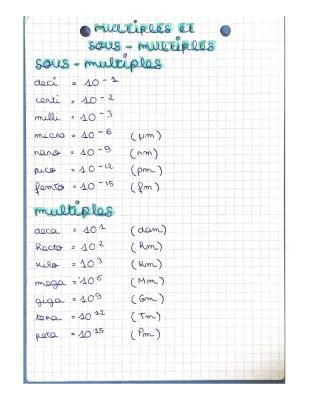 multiples et
sous - multiples
sous - multiples
deci = 10⁻¹
centi = 10⁻²
milli = 10⁻³
micro = 10⁻⁶ (μm)
nano = 10⁻⁹ (nm)
pico = 10⁻¹² (pm)
femto = 10⁻¹⁵ (fm)
multiples
deca = 10¹ (dam)
hecto = 10² (hm)
kilo = 10³ (km)
mega = 10⁶ (Mm)
giga = 10⁹ (Gm)
tera = 10¹² (Tm)
peta = 10¹⁵ (Pm)